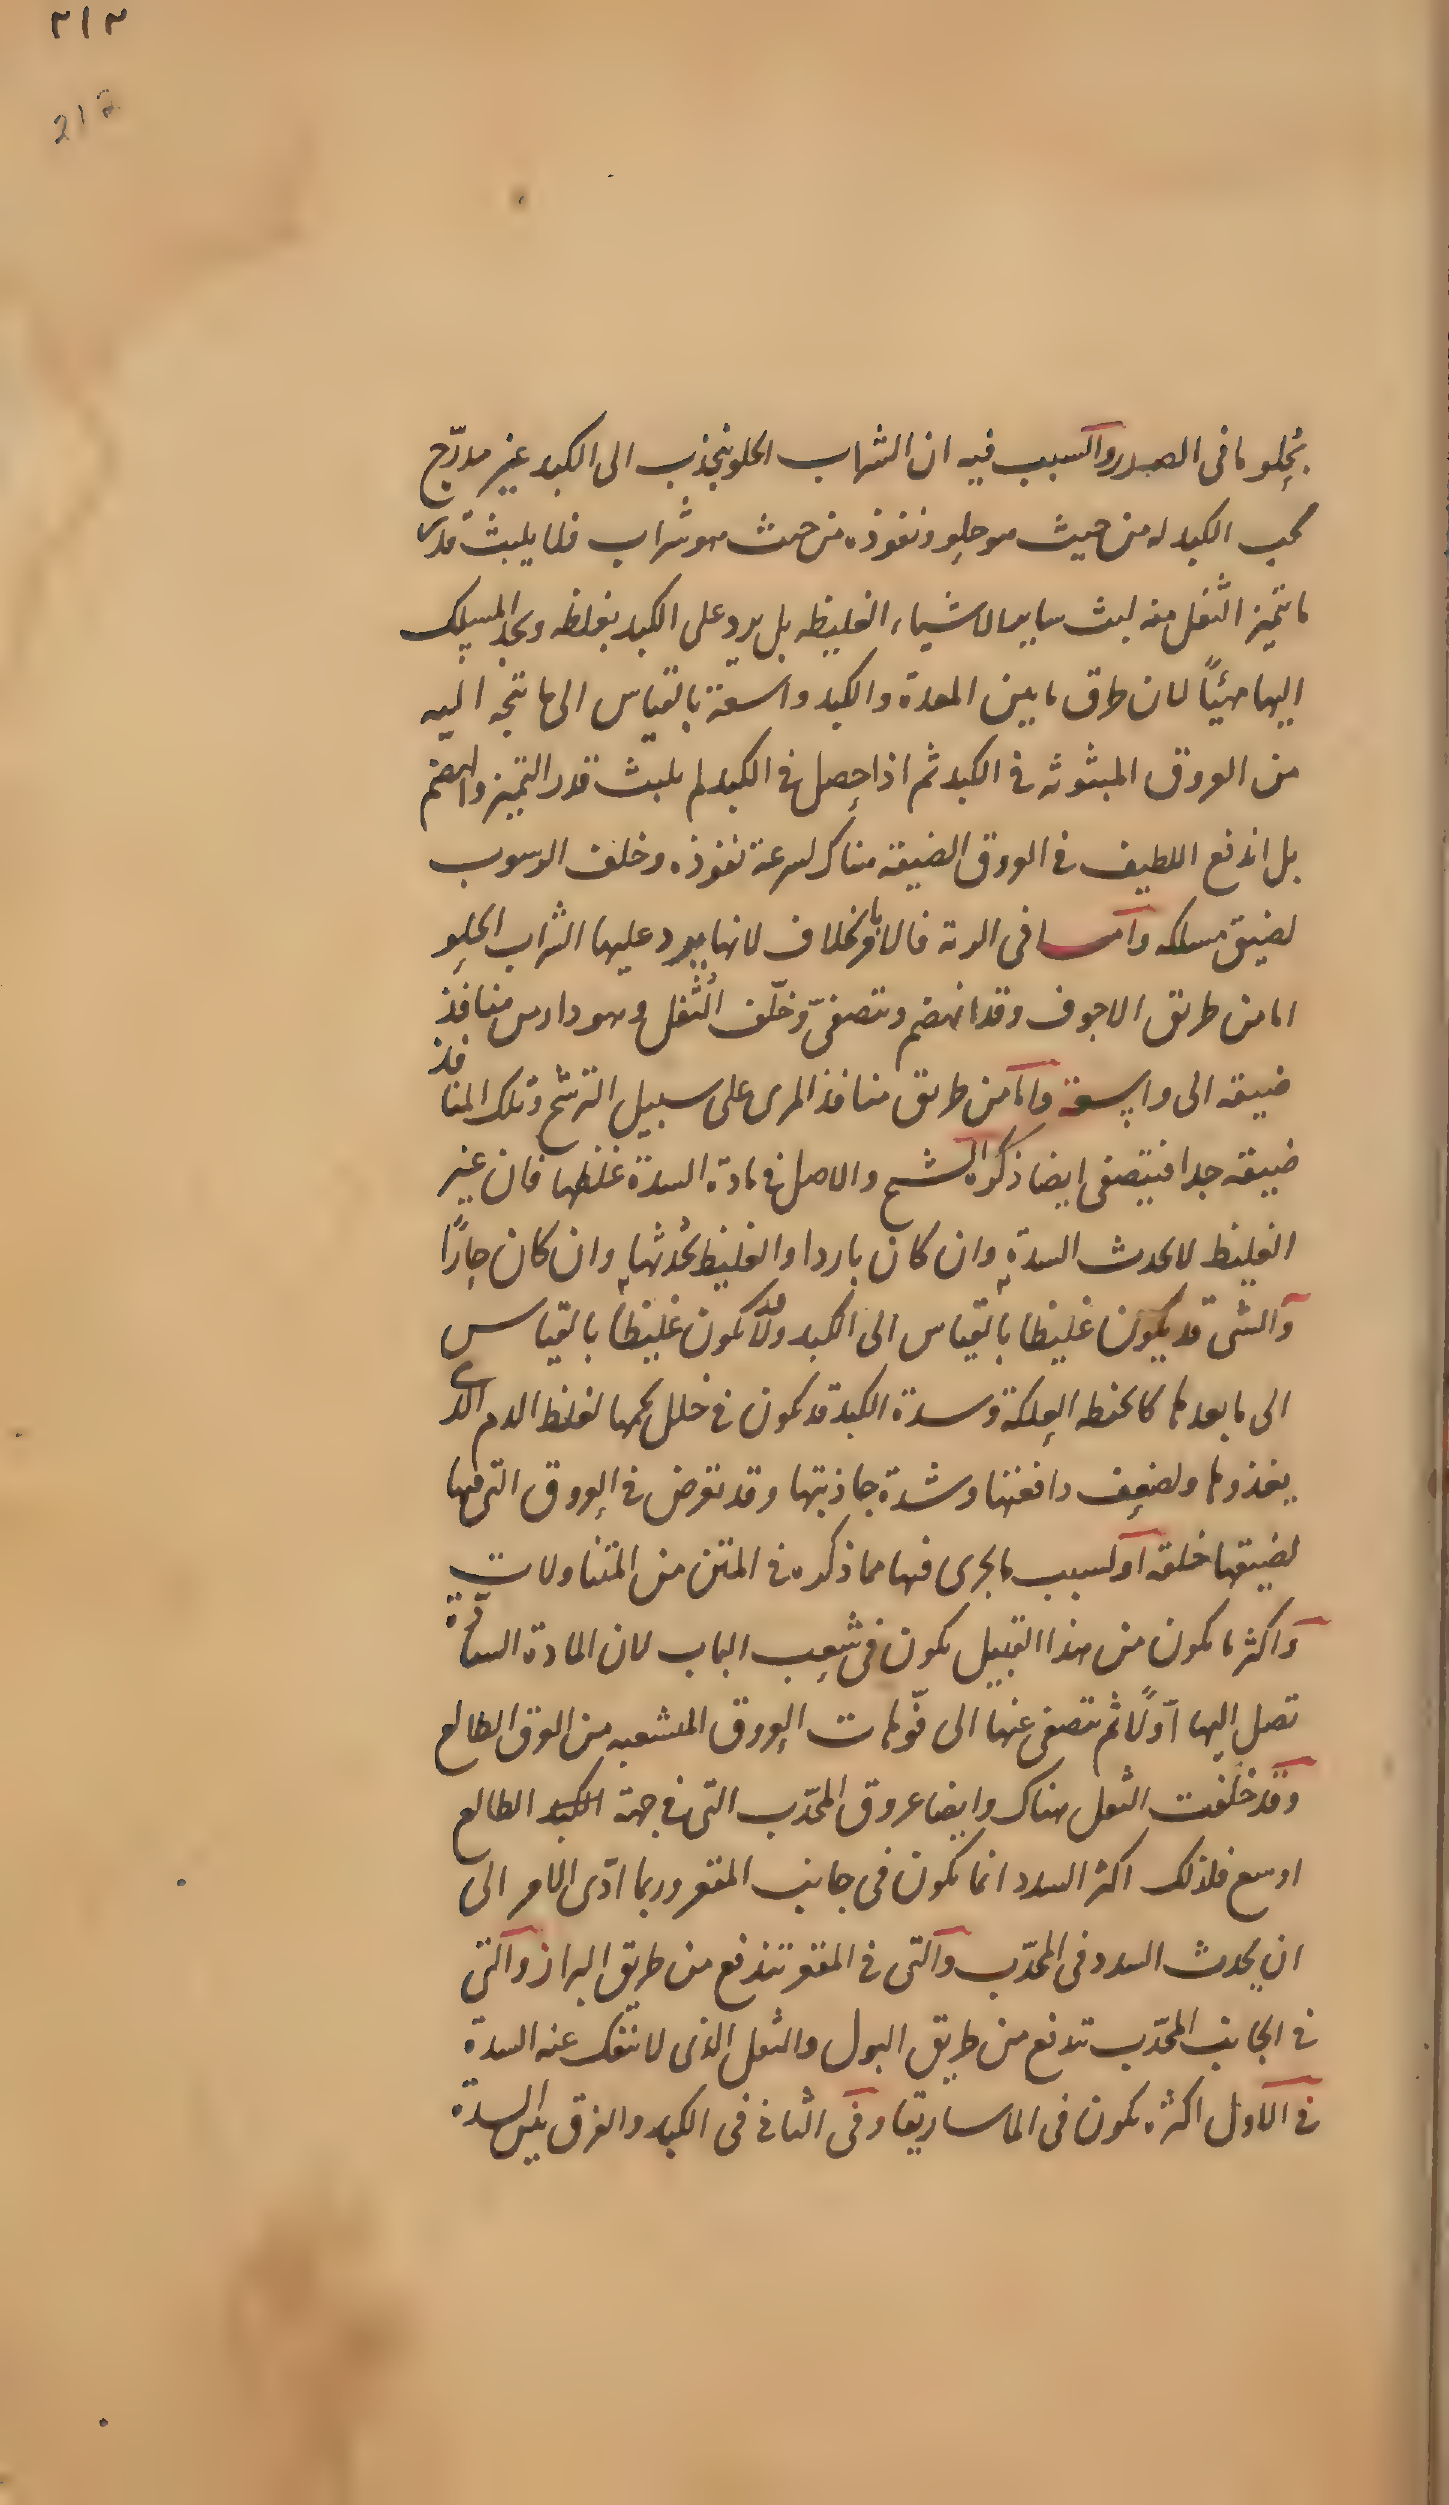 ٢١٢
212
يجلو ما فى الصدر والسبب فيه ان الشراب الحلو ينجذب الى الكبد غير مدرّج
لحب الكبد له من حيث هو حلو ونفوذه من حيث هو شراب فلا يلبث قدر
ما يتميز الثفل منه لبث ساير الاشياء الغليظه بل يرد على الكبد بغلظه ويجد المسلك
اليها مهيّئاً لان طرق ما بين المعدة والكبد واسعة بالقياس الى ما يتجه اليه
من العروق المبثوثه فى الكبد ثم اذا حصل فى الكبد لم يلبث قدر التميز والهضم
بل اندفع اللطيف فى العروق الضيقه هناك لسرعة نفوذه وخلف الرسوب
لضيق مسلكه واما فى الرئة فالامر بالخلاف لانها يرد عليها الشراب الحلو
اما من طريق الاجوف وقد انهضم وتصفىّ وخلّف الثفل وهو دارس منافذ
ضيقه الى واسعة واما من طريق منافذ المرى على سبيل الترشح وتلك المنافذ
ضيقه جدا فيتصفى ايضا ذكره الشيخ والاصل فى مادة السدة غلظها فان غير
الغليظ لا يحدث السدة وان كان باردا والغليظ يحدثها وان كان حارًا
والشى قد يكون غليظا بالقياس الى الكبد وقد لا يكون غليظا بالقياس
الى ما بعدها كالحنطه العلكة وسدة الكبد قد يكون فى خلل لحمها لغلظ الدم الذى
يغذوها ولضعف دافعتها وشدة جاذبتها وقد تعرض فى العروق التى فيها
لضيقها خلقه او لسبب ما يجرى فيها مما ذكره فى المتن من المتناولات
واكثر ما يكون من هذا القبيل يكون فى شعب الباب لان المادة السادّة
تصل اليها اوّلاً ثم تتصفى عنها الى فوّهات العروق المتشعبه من العرق الطالع
وقد خلفت الثفل هناك وايضا عروق المحدّب التى فى جهة الكبد الطالع
اوسع فلذلك اكثر السدد انما يكون فى جانب المقعر وربما ادّى الامر الى
ان يحدث السدد فى المحدّب والتى فى المقعر تندفع من طريق البراز والتى
فى الجانب المحدّب تندفع من طريق البول والثفل الذى لا تنفك عنه السدة
فى الاول اكثره يكون فى الماساريقا وفى الثانى فى الكبد والفرق بين السدة